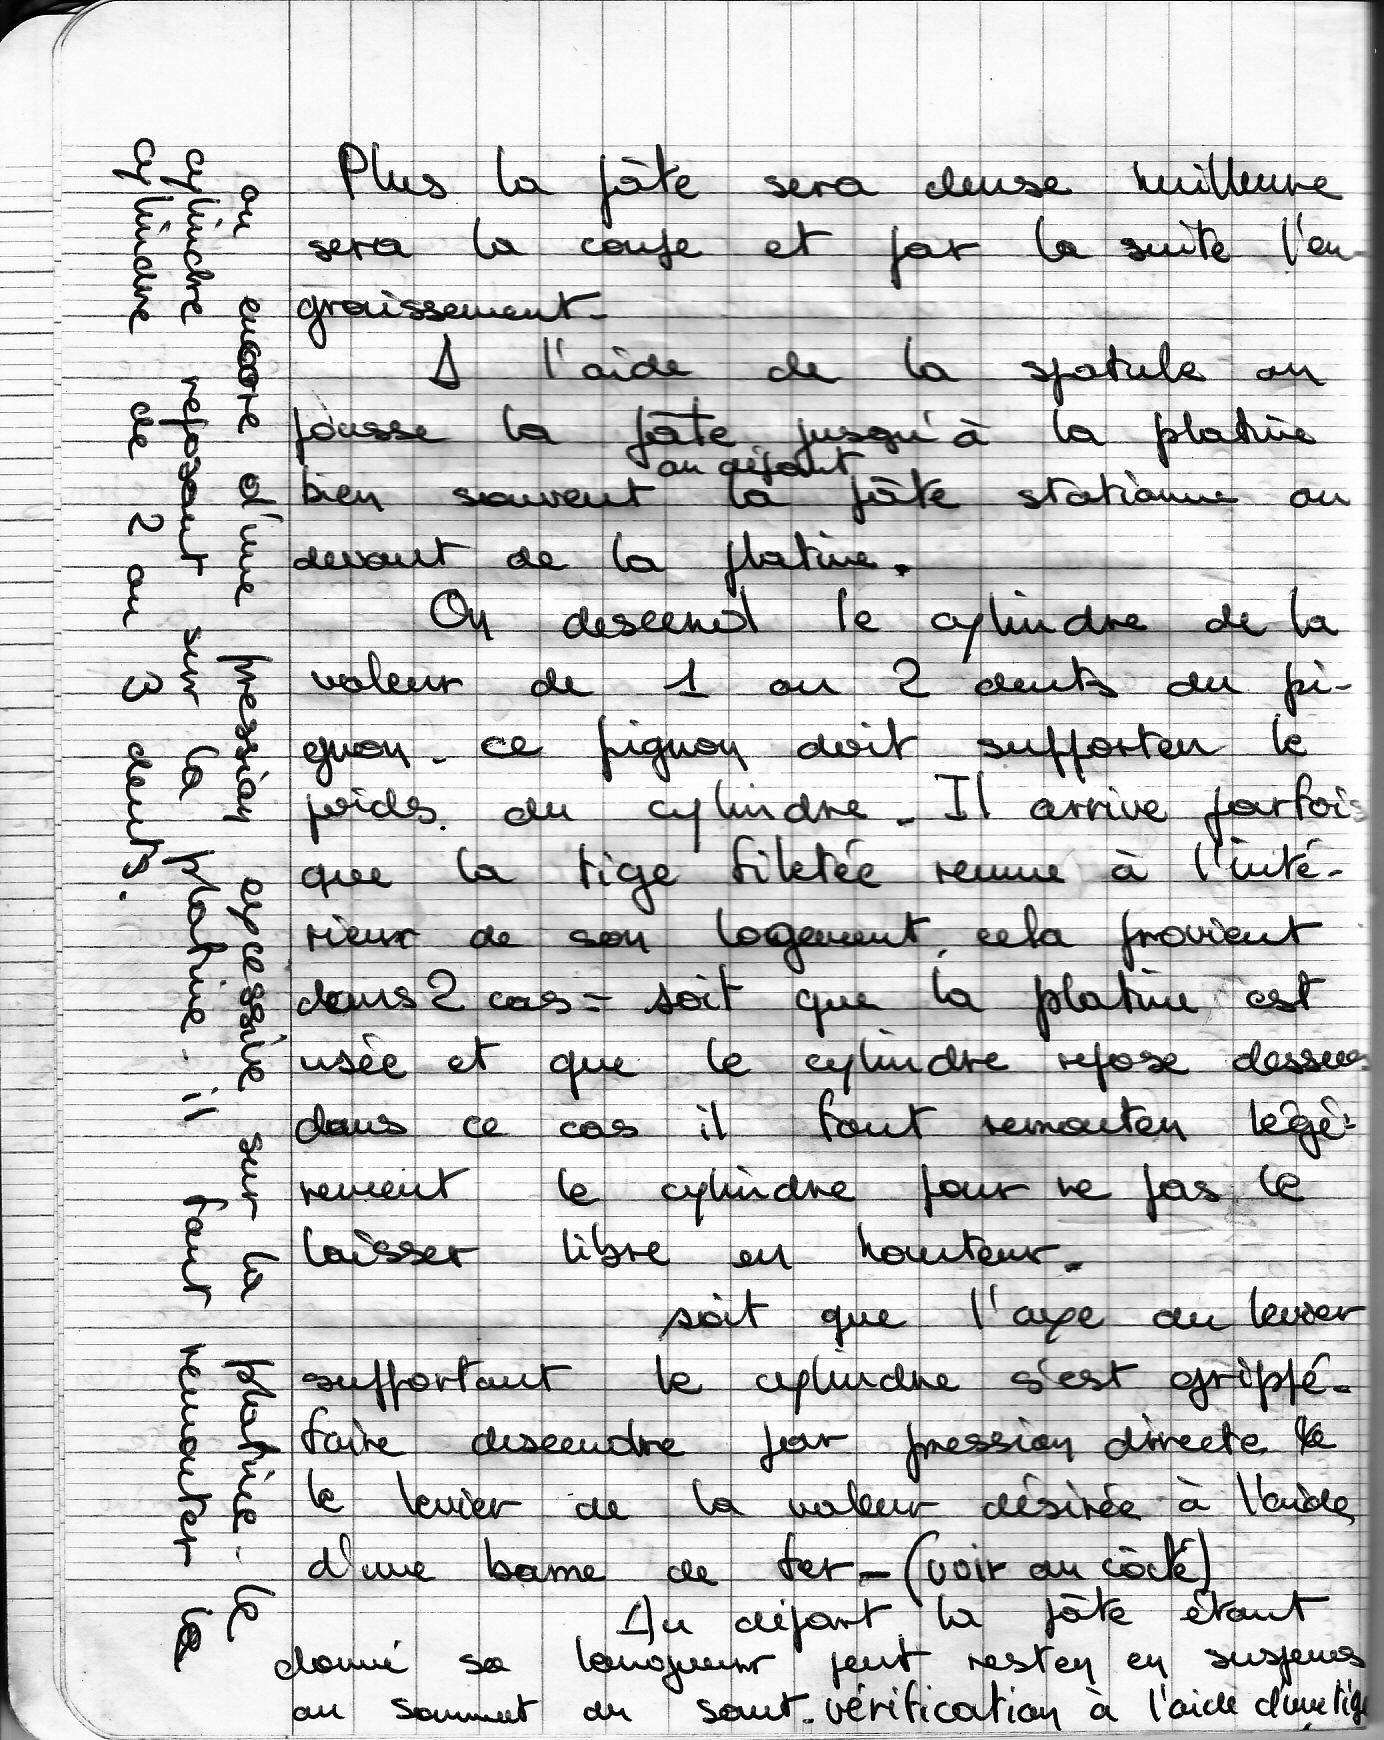 Plus la pâte sera dense meilleure
sera la coupe et par la suite l'en-
graissement.
A l'aide de la spatule on
pousse la pâte jusqu'à la platine
au départ
bien souvent la pâte stationne au
devant de la platine.
On descend le cylindre de la
valeur de 1 ou 2 dents du pi-
gnon. ce pignon doit supporter le
poids du cylindre. Il arrive parfois
que la tige filetée remue à l'inté-
rieur de son logement, cela provient
dans 2 cas = soit que la platine est
usée et que le cylindre repose dessus
dans ce cas il faut remonter légè-
rement le cylindre pour ne pas le
laisser libre en hauteur.
soit que l'axe du levier
supportant le cylindre s'est grippé.
faire descendre par pression directe
le levier de la valeur désirée à l'aide
d'une barre de fer - (voir au côté)
Au départ la pâte étant
donné sa longueur peut rester en suspens
au sommet du saut. vérification à l'aide d'une tige
ou encore d'une pression excessive sur la platine. le
cylindre reposant sur la platine. il faut remonter le
cylindre de 2 ou 3 dents.